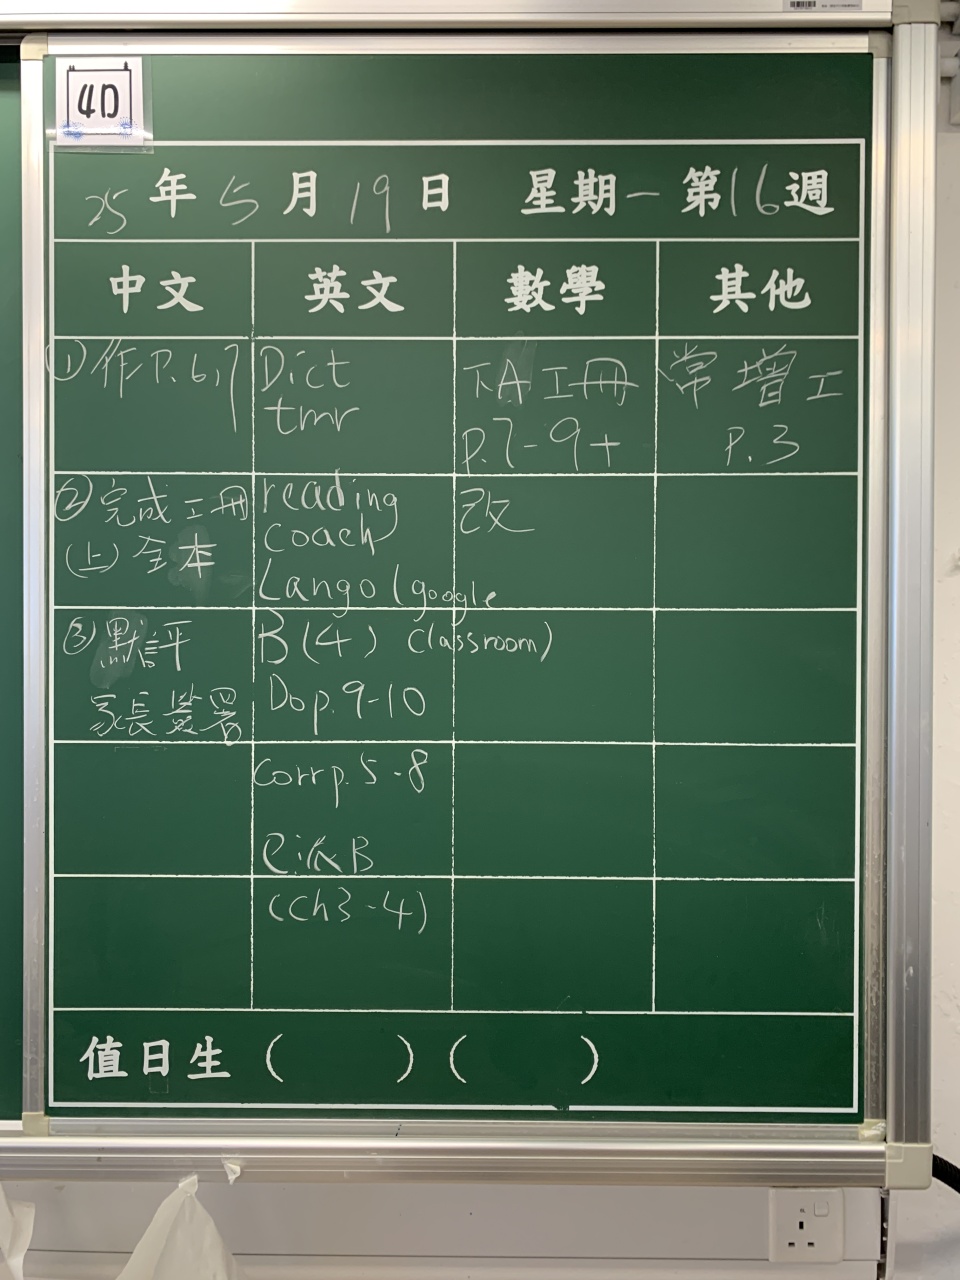 4D
25年5月19日 星期一第16週
中文 英文 數學 其他
①作P.6,7
②完成工冊
(上)全本
③默評
家長簽署
Dict
tmr
reading
coach
Lango (google
B(4) classroom)
Do p.9-10
Corr p.5-8
派B
(Ch3-4)
下A工冊
p.7-9+
改
常增工
P.3
值日生 ( ) ( )